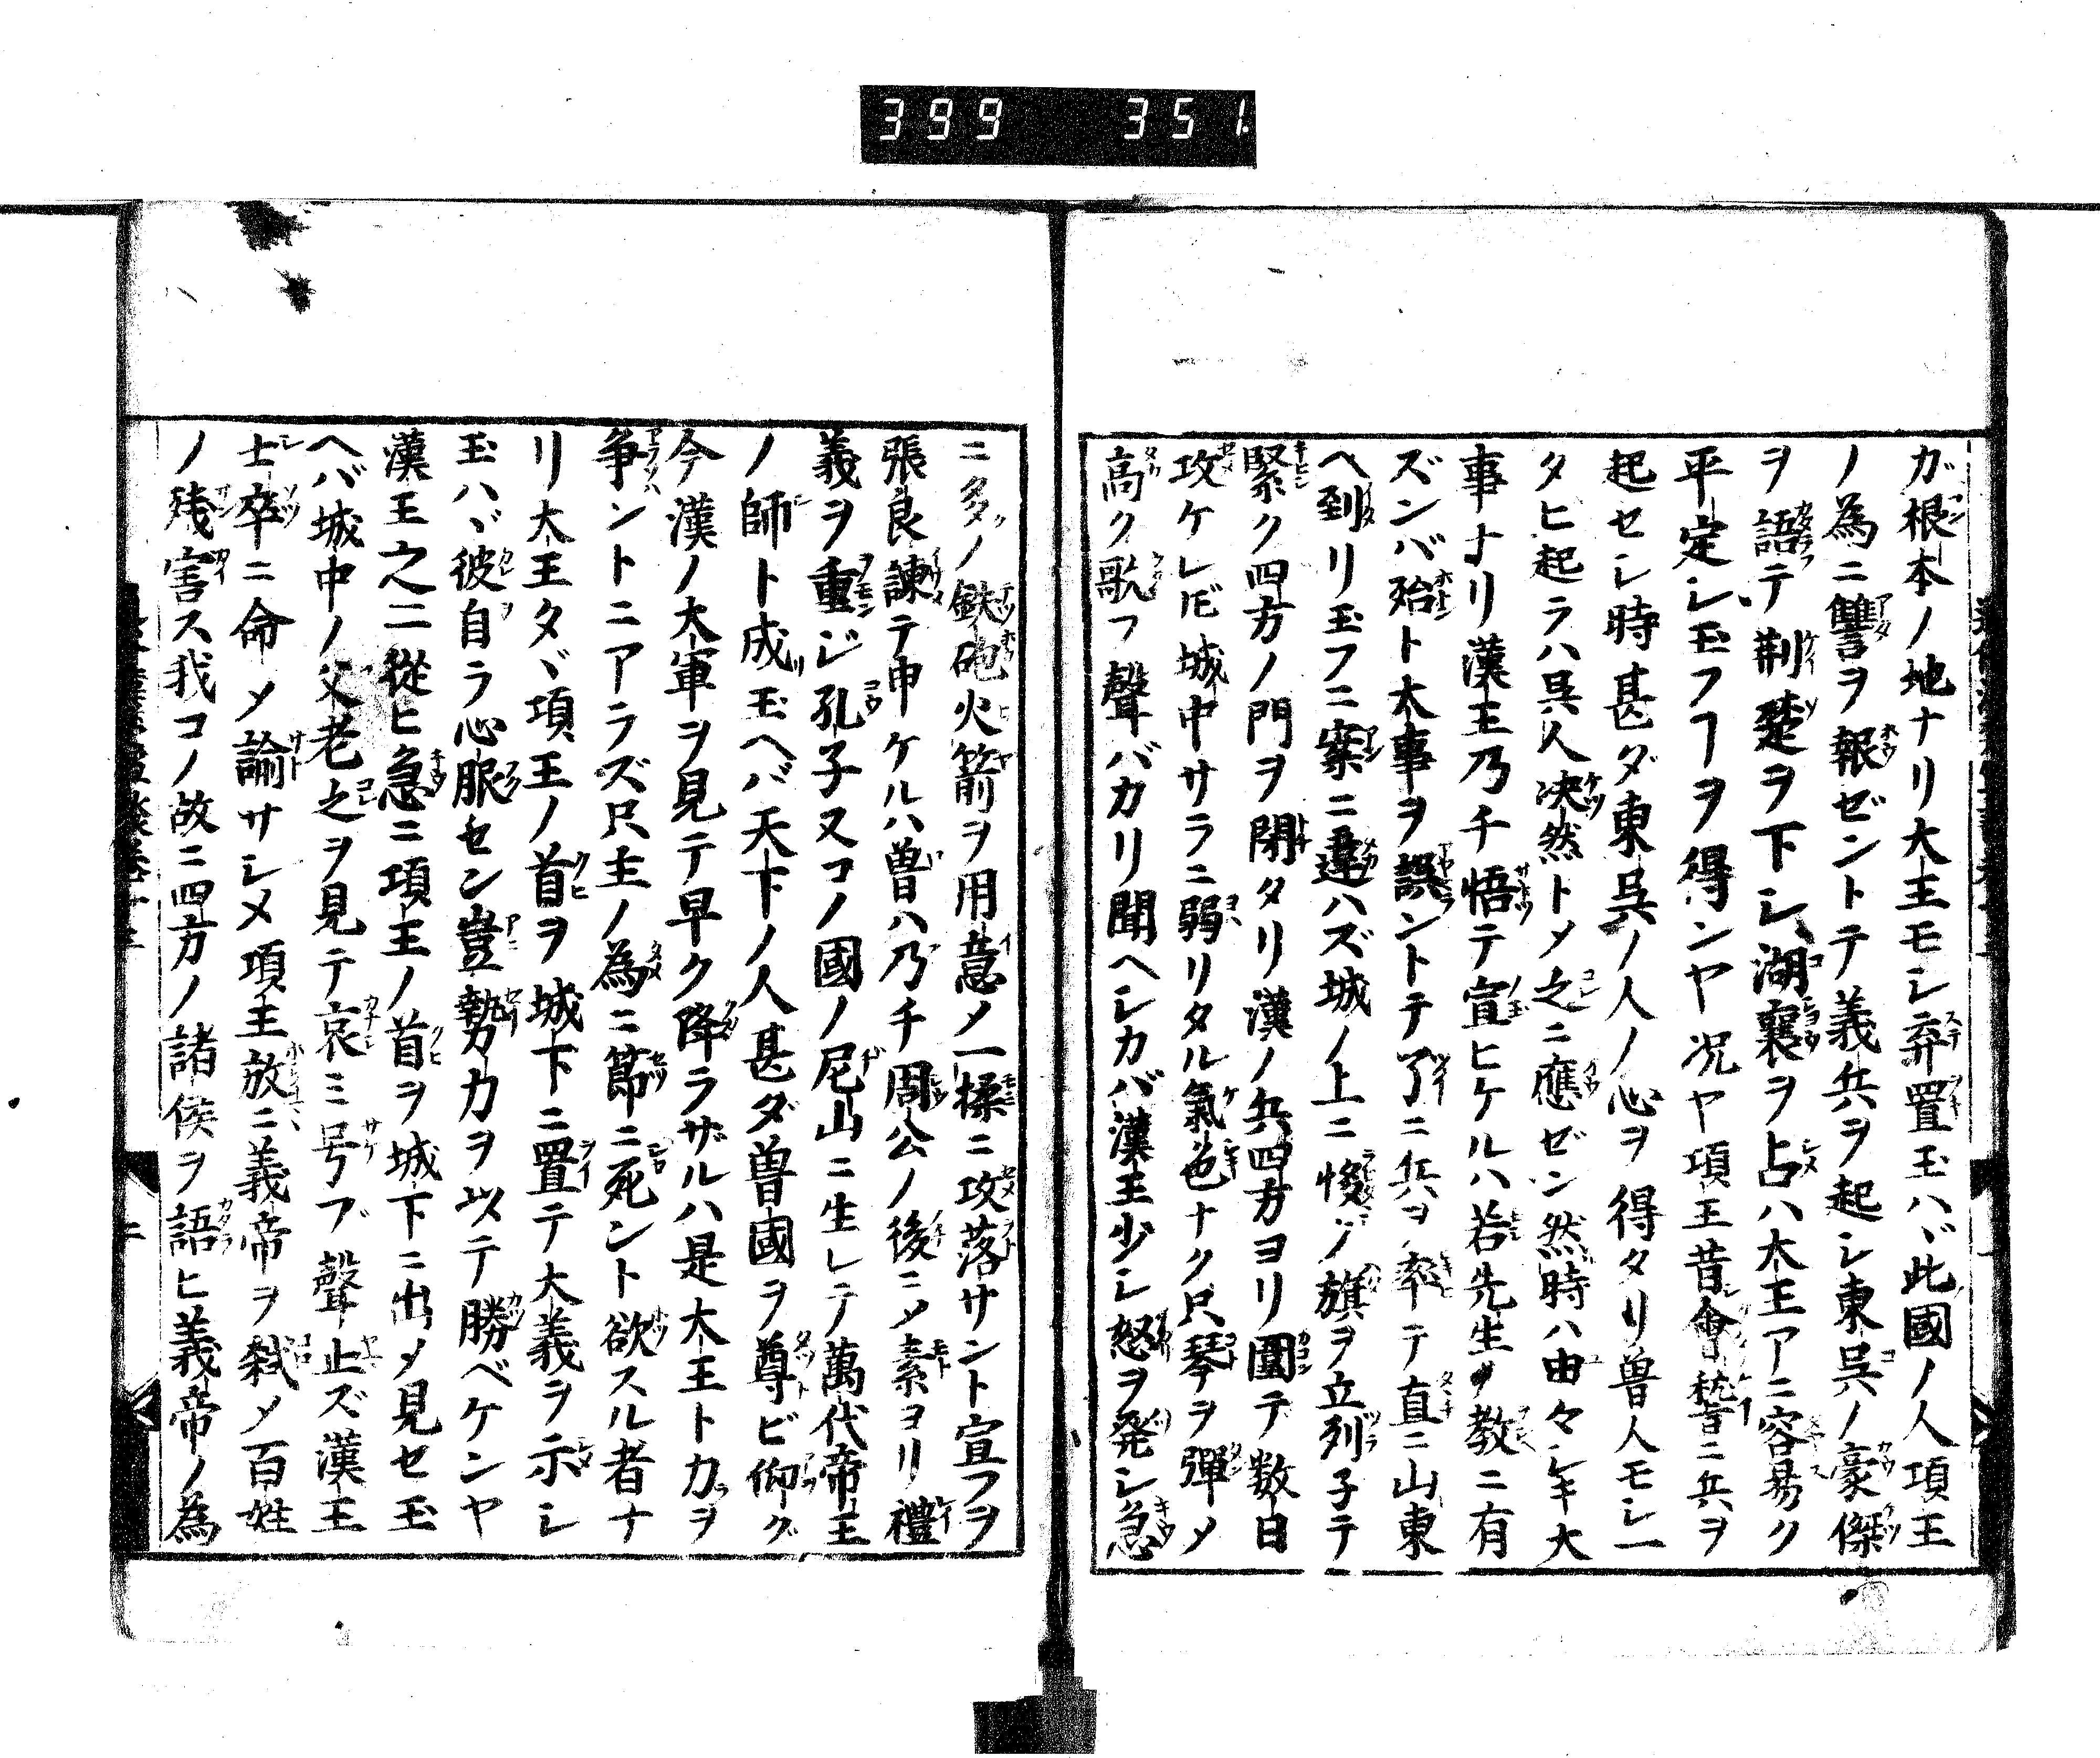 399 351
ガ根本ノ地ナリ大王モシ弃置玉ハヾ此國ノ人項王
ノ為ニ讐ヲ報ゼントテ義兵ヲ起シ東呉ノ豪傑
ヲ語テ荆楚ヲ下シ湖襄ヲ占ハ大王アニ容易ク
平定シ玉フヿヲ得ンヤ况ヤ項王昔會稽ニ兵ヲ
起セシ時甚ダ東呉ノ人ノ心ヲ得タリ魯人モシ一
タヒ起ラハ呉人决然トメ之ニ應ゼン然時ハ由々シキ大
事ナリ漢王乃チ悟テ宣ヒケルハ若先生ノ教ニ有
ズンバ殆ト大事ヲ誤ントテ了ニ兵ヲ率テ直ニ山東
ヘ到リ玉フニ案ニ違ハズ城ノ上ニ悛ノ旗ヲ立列子テ
緊ク四方ノ門ヲ閉タリ漢ノ兵四方ヨリ圍テ数日
攻ケレ𪜈城中サラニ弱リタル氣色ナク只琴ヲ彈メ
高ク歌フ聲バカリ聞ヘシカバ漢王少シ怒ヲ発シ急
ニ多ノ鉄砲火箭ヲ用意メ一揉ニ攻落サント宣フヲ
張良諫テ申ケルハ魯ハ乃チ周公ノ後ニメ素ヨリ禮
義ヲ重ジ孔子又コノ國ノ尼山ニ生レテ萬代帝王
ノ師ト成玉ヘバ天下ノ人甚ダ魯國ヲ尊ビ仰グ
今漢ノ大軍ヲ見テ早ク降ラザルハ是大王ト力ヲ
争ントニアラズ只主ノ為ニ節ニ死ント欲スル者ナ
リ大王タヾ項王ノ首ヲ城下ニ置テ大義ヲ示シ
玉ハヾ彼自ラ心服セン豈勢力ヲ以テ勝ベケンヤ
漢王之ニ從ヒ急ニ項王ノ首ヲ城下ニ出メ見セ玉
ヘバ城中ノ父老之ヲ見テ哀ミ号ブ聲止ズ漢王
士卒ニ命メ諭サシメ項王放ニ義帝ヲ弑メ百姓
ノ残害ス我コノ故ニ四方ノ諸侯ヲ語ヒ義帝ノ為